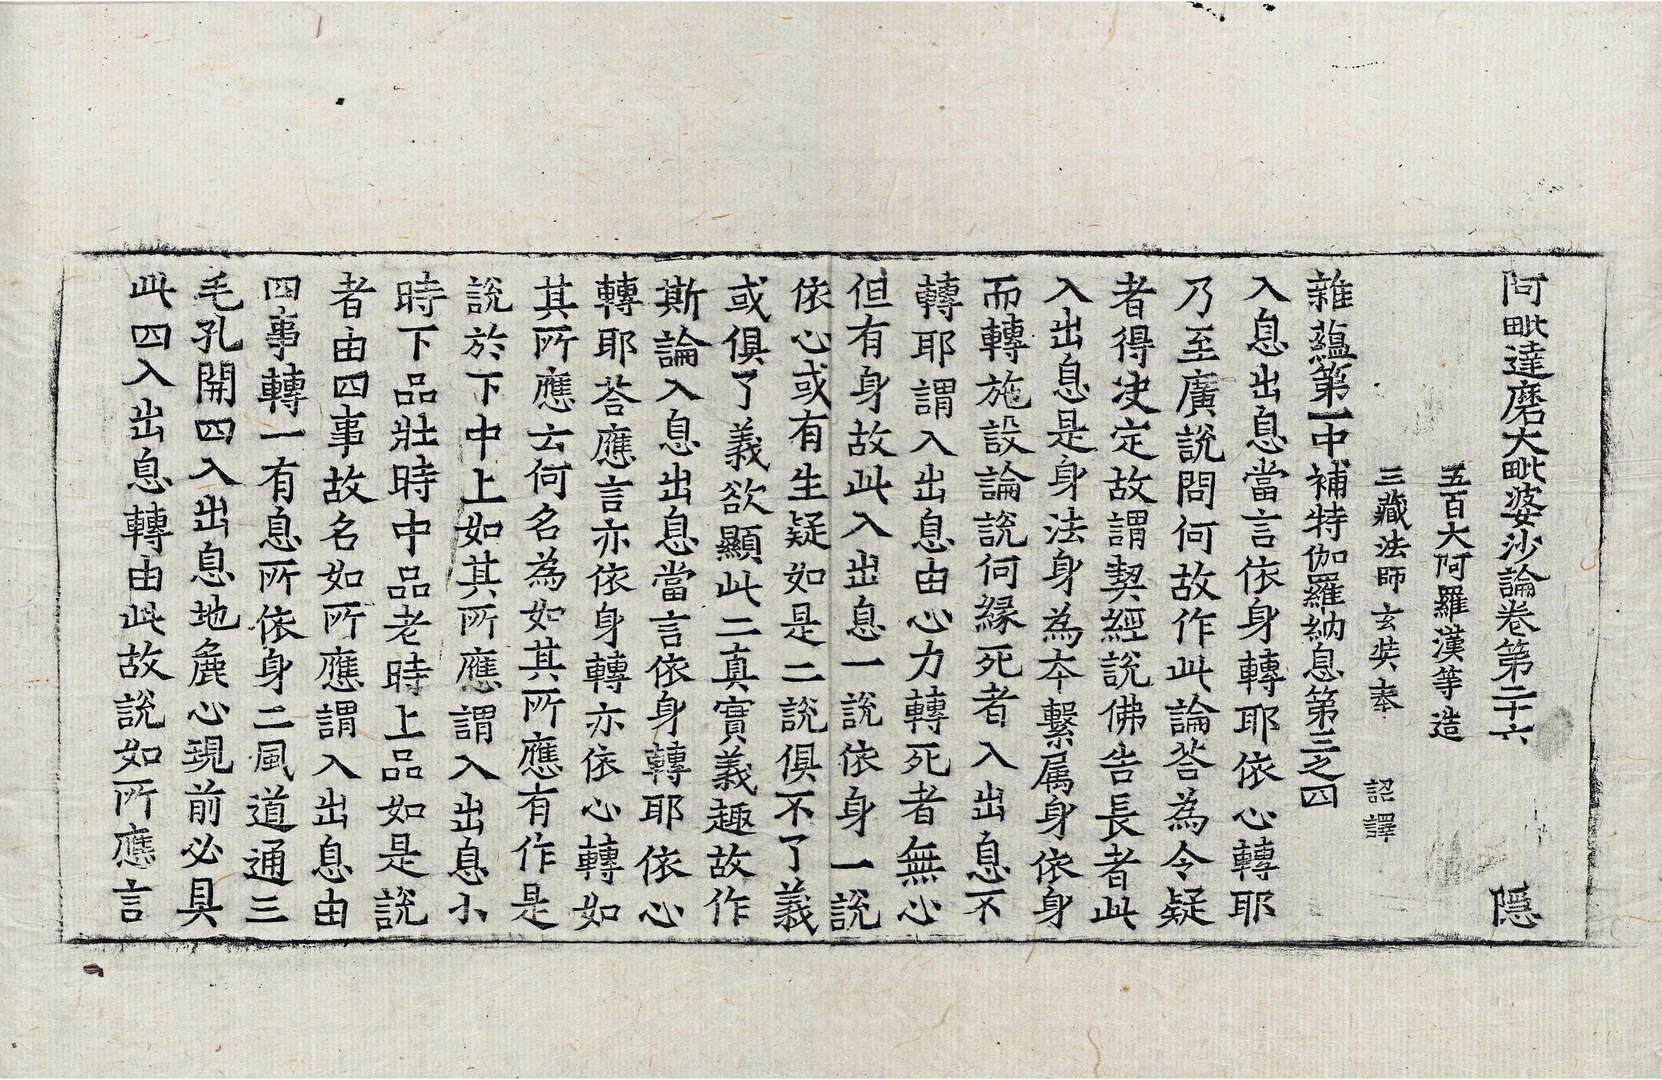 阿毗達磨大毗婆沙論卷第二十六 隱
五百大阿羅漢等造
三藏法師玄奘奉 詔譯
雜蘊第一中補特伽羅納息第三之四
入息出息當言依身轉耶依心轉耶
乃至廣說問何故作此論荅為令疑
者得決定故謂契經說佛告長者此
入出息是身法身為夲繫属身依身
而轉施設論說何緣死者入出息不
轉耶謂入出息由心力轉死者無心
但有身故此入出息一說依身一說
依心或有生疑如是二說俱不了義
或俱了義欲顯此二真實義趣故作
斯論入息出息當言依身轉耶依心
轉耶荅應言亦依身轉亦依心轉如
其所應云何名為如其所應有作是
說於下中上如其所應謂入出息小
時下品壯時中品老時上品如是說
者由四事故名如所應謂入出息由
四事轉一有息所依身二風道通三
毛孔開四入出息地麁心現前必具
此四入出息轉由此故說如所應言